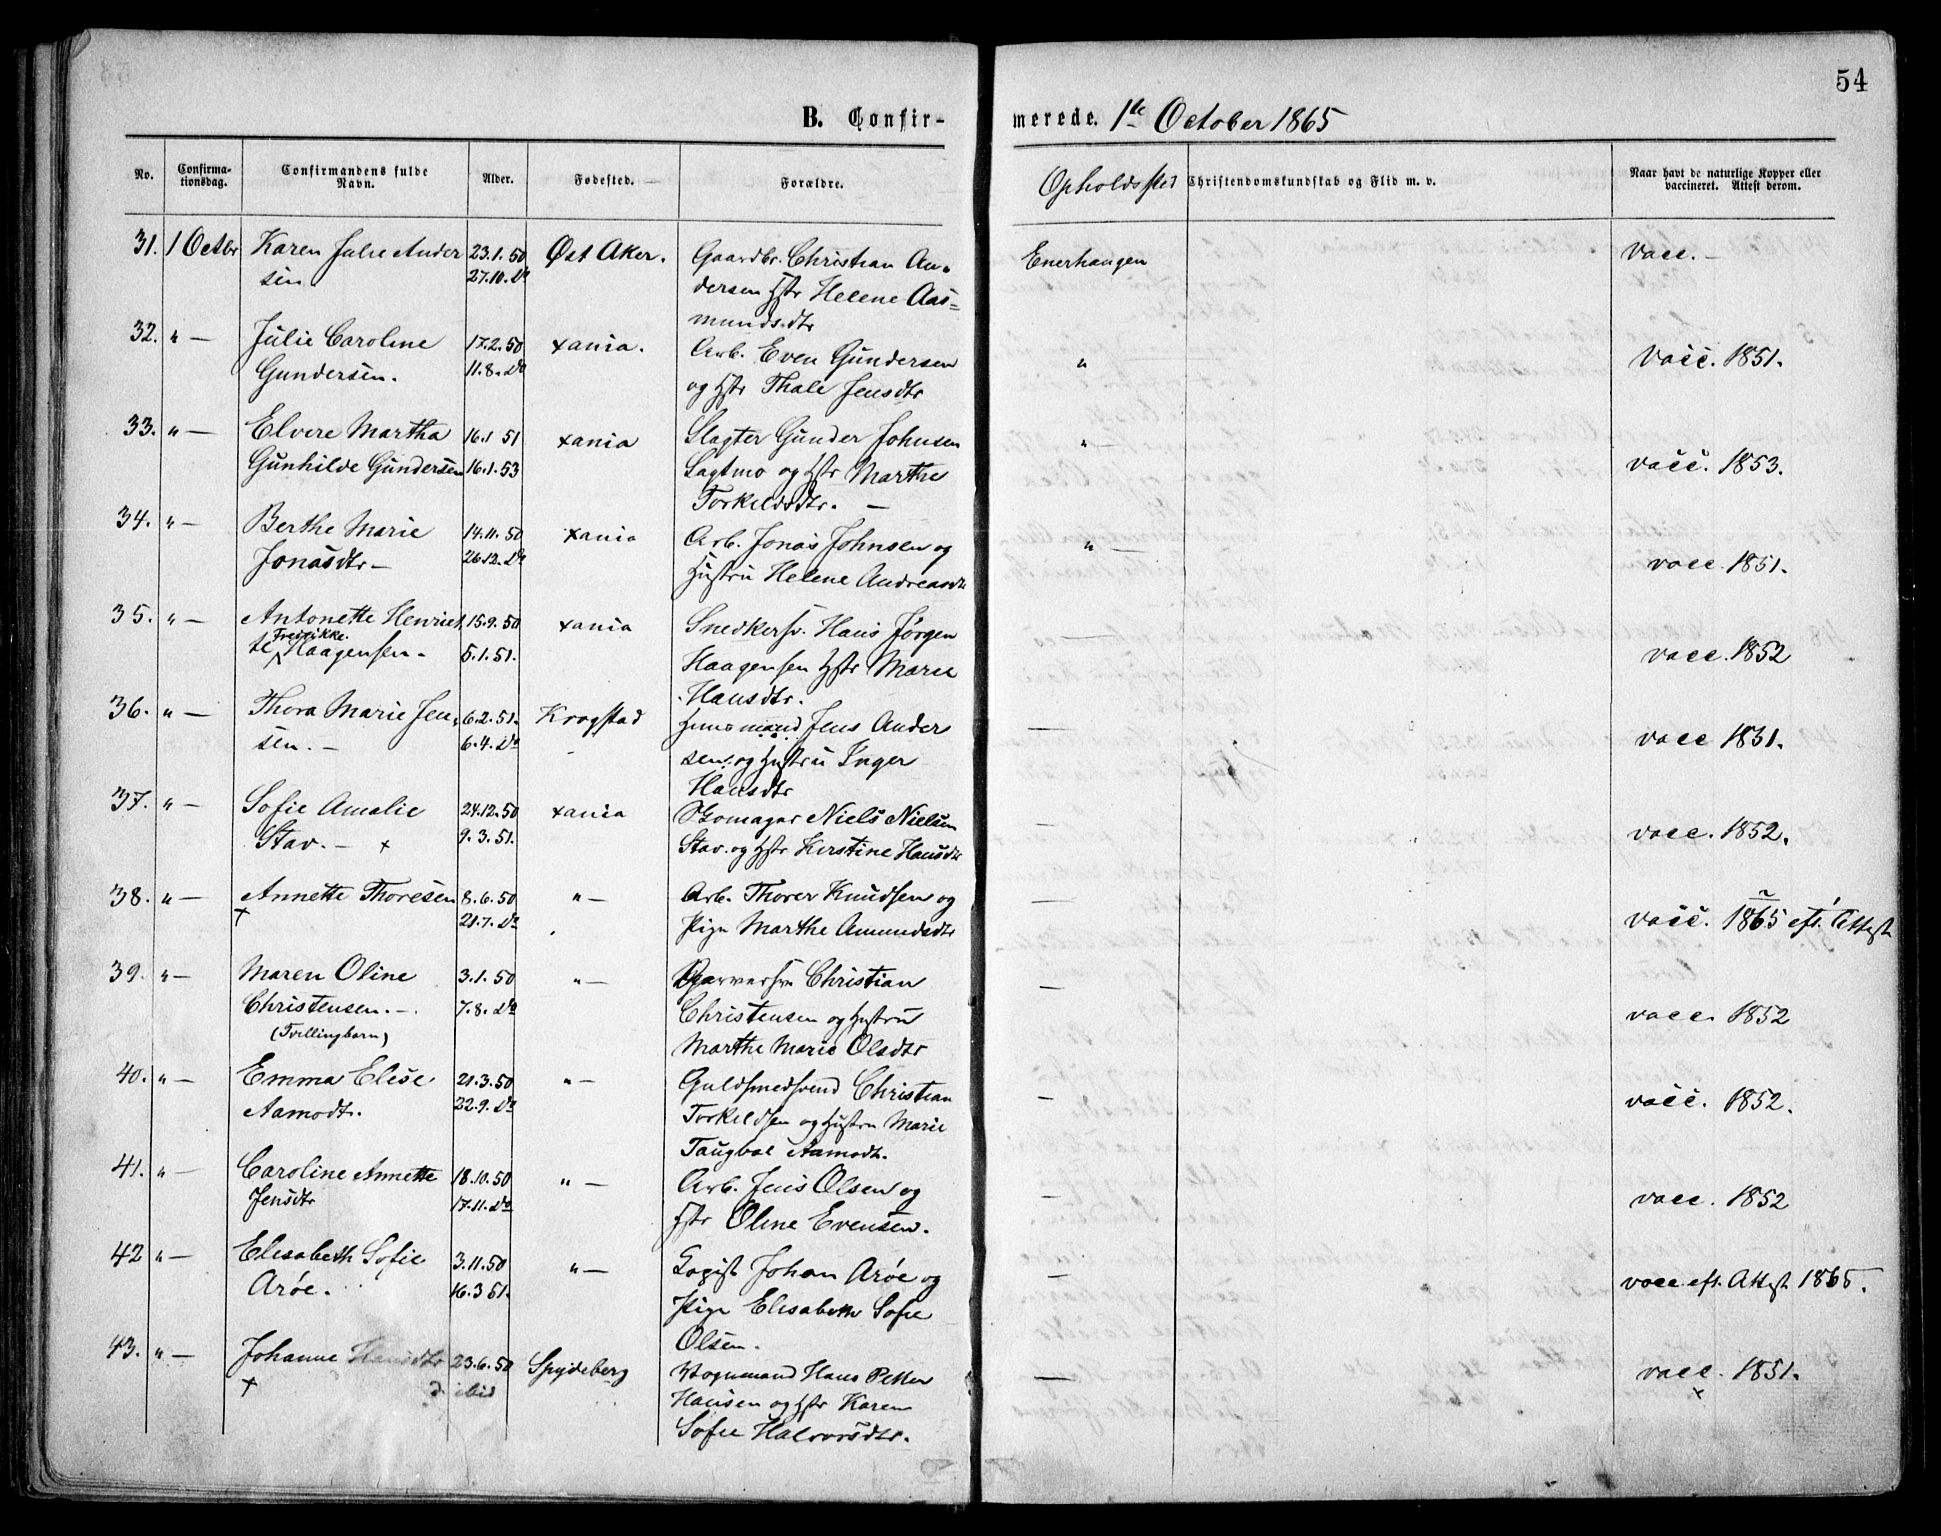 54
B. Confir-
merede. 1ste October 1865
No.
Confirma-
tionsdag.
Confirmandens fulde
Navn.
Alder.
Fødested.
Forældre.
Opholdssted
Christendomskundskab og Flid m. v.
Naar havt de naturlige Kopper eller
vaccineret. Attest derom.
31. 1 Octbr Karen Julie Ander 23.1.50 Øst Aker. Gaardbr. Christian An- Enerhaugen vacc. —
sen 27.10. Do dersen Hstr Helene Aas=
mundsdtr
32. " — Julie Caroline 17.2.50 xania. Arb. Even Gundersen " — vacc. 1851.
Gundersen. 11.8. Do og Hstr Thale Jensdtr
33. " — Elvere Martha 16.1 51 xania Slagter Gunder Johnsen " — vacc. 1853.
Gunhilde Gundersen 16.1.53 Sagtmo og Hstr Marthe
Torkildsdtr. —
34. " — Berthe Marie 14.11.50 xania Arb. Jonas Johnsen og " — vacc. 1851.
Jonasdtr — 26.12. Do Hustru Helene Andreasdt
35. " — Antonette Henriet 15.9.50 xania Snedkersv. Hans Jørgen vacc. 1852
Fredrikke.
te Haagensen. 5.1.51. Haagensen Hstr Marie
Hansdtr.
36. " — Thora Marie Jen- 6.2.51. Krogstad Huusmand Jens Ander — vacc 1851.
sen. — 6.4. Do sen og Hustru Inger
Hansdtr
37. " — Sofie Amalie 24.12.50 xania Skomager Niels Nielsen — vacc. 1852.
Stav. — x 9.3.51. Stav. og Hstr Kirstine Hansdtr
38. " — Annette Thoresen 8.6.50 " — Arb. Thorer Knudsen og vacc. 1865 eft. Attest
x 21.7. Do Pige Marthe Amundsdtr
39. " — Maren Oline 3.1.50 " — Garversv. Christian — vacc. 1852
Christensen. — 7.8. Do Christensen og Hustru
(Tvillingbarn) Marthe Marie Olsdtr
40. " — Emma Elise 21.3.50 " — Guldsmedsvend Christian — vacc. 1852.
Aamodt. 22.9. Do Torkildsen og Hustru Marie
Taugbøl Aamodt.
41. " — Caroline Annette 18.10.50 " — Arb. Jens Olsen og — vacc. 1852
Jensdtr 17.11. Do Hstr Oline Evensen.
42 " — Elisabeth Sofie 3.11.50 " — Logist Johan Arøe og — vacc. eft. Attest 1865.
Arøe. 16.3 51. Pige Elisabeth Sofie
Olsen.
43. " — Johanne Hansdtr 23.6.50 Spydeberg Vognmand Hans Petter — vacc. 1851.
x Hansen og Hstr Karen x
Sofie Halvorsdtr.